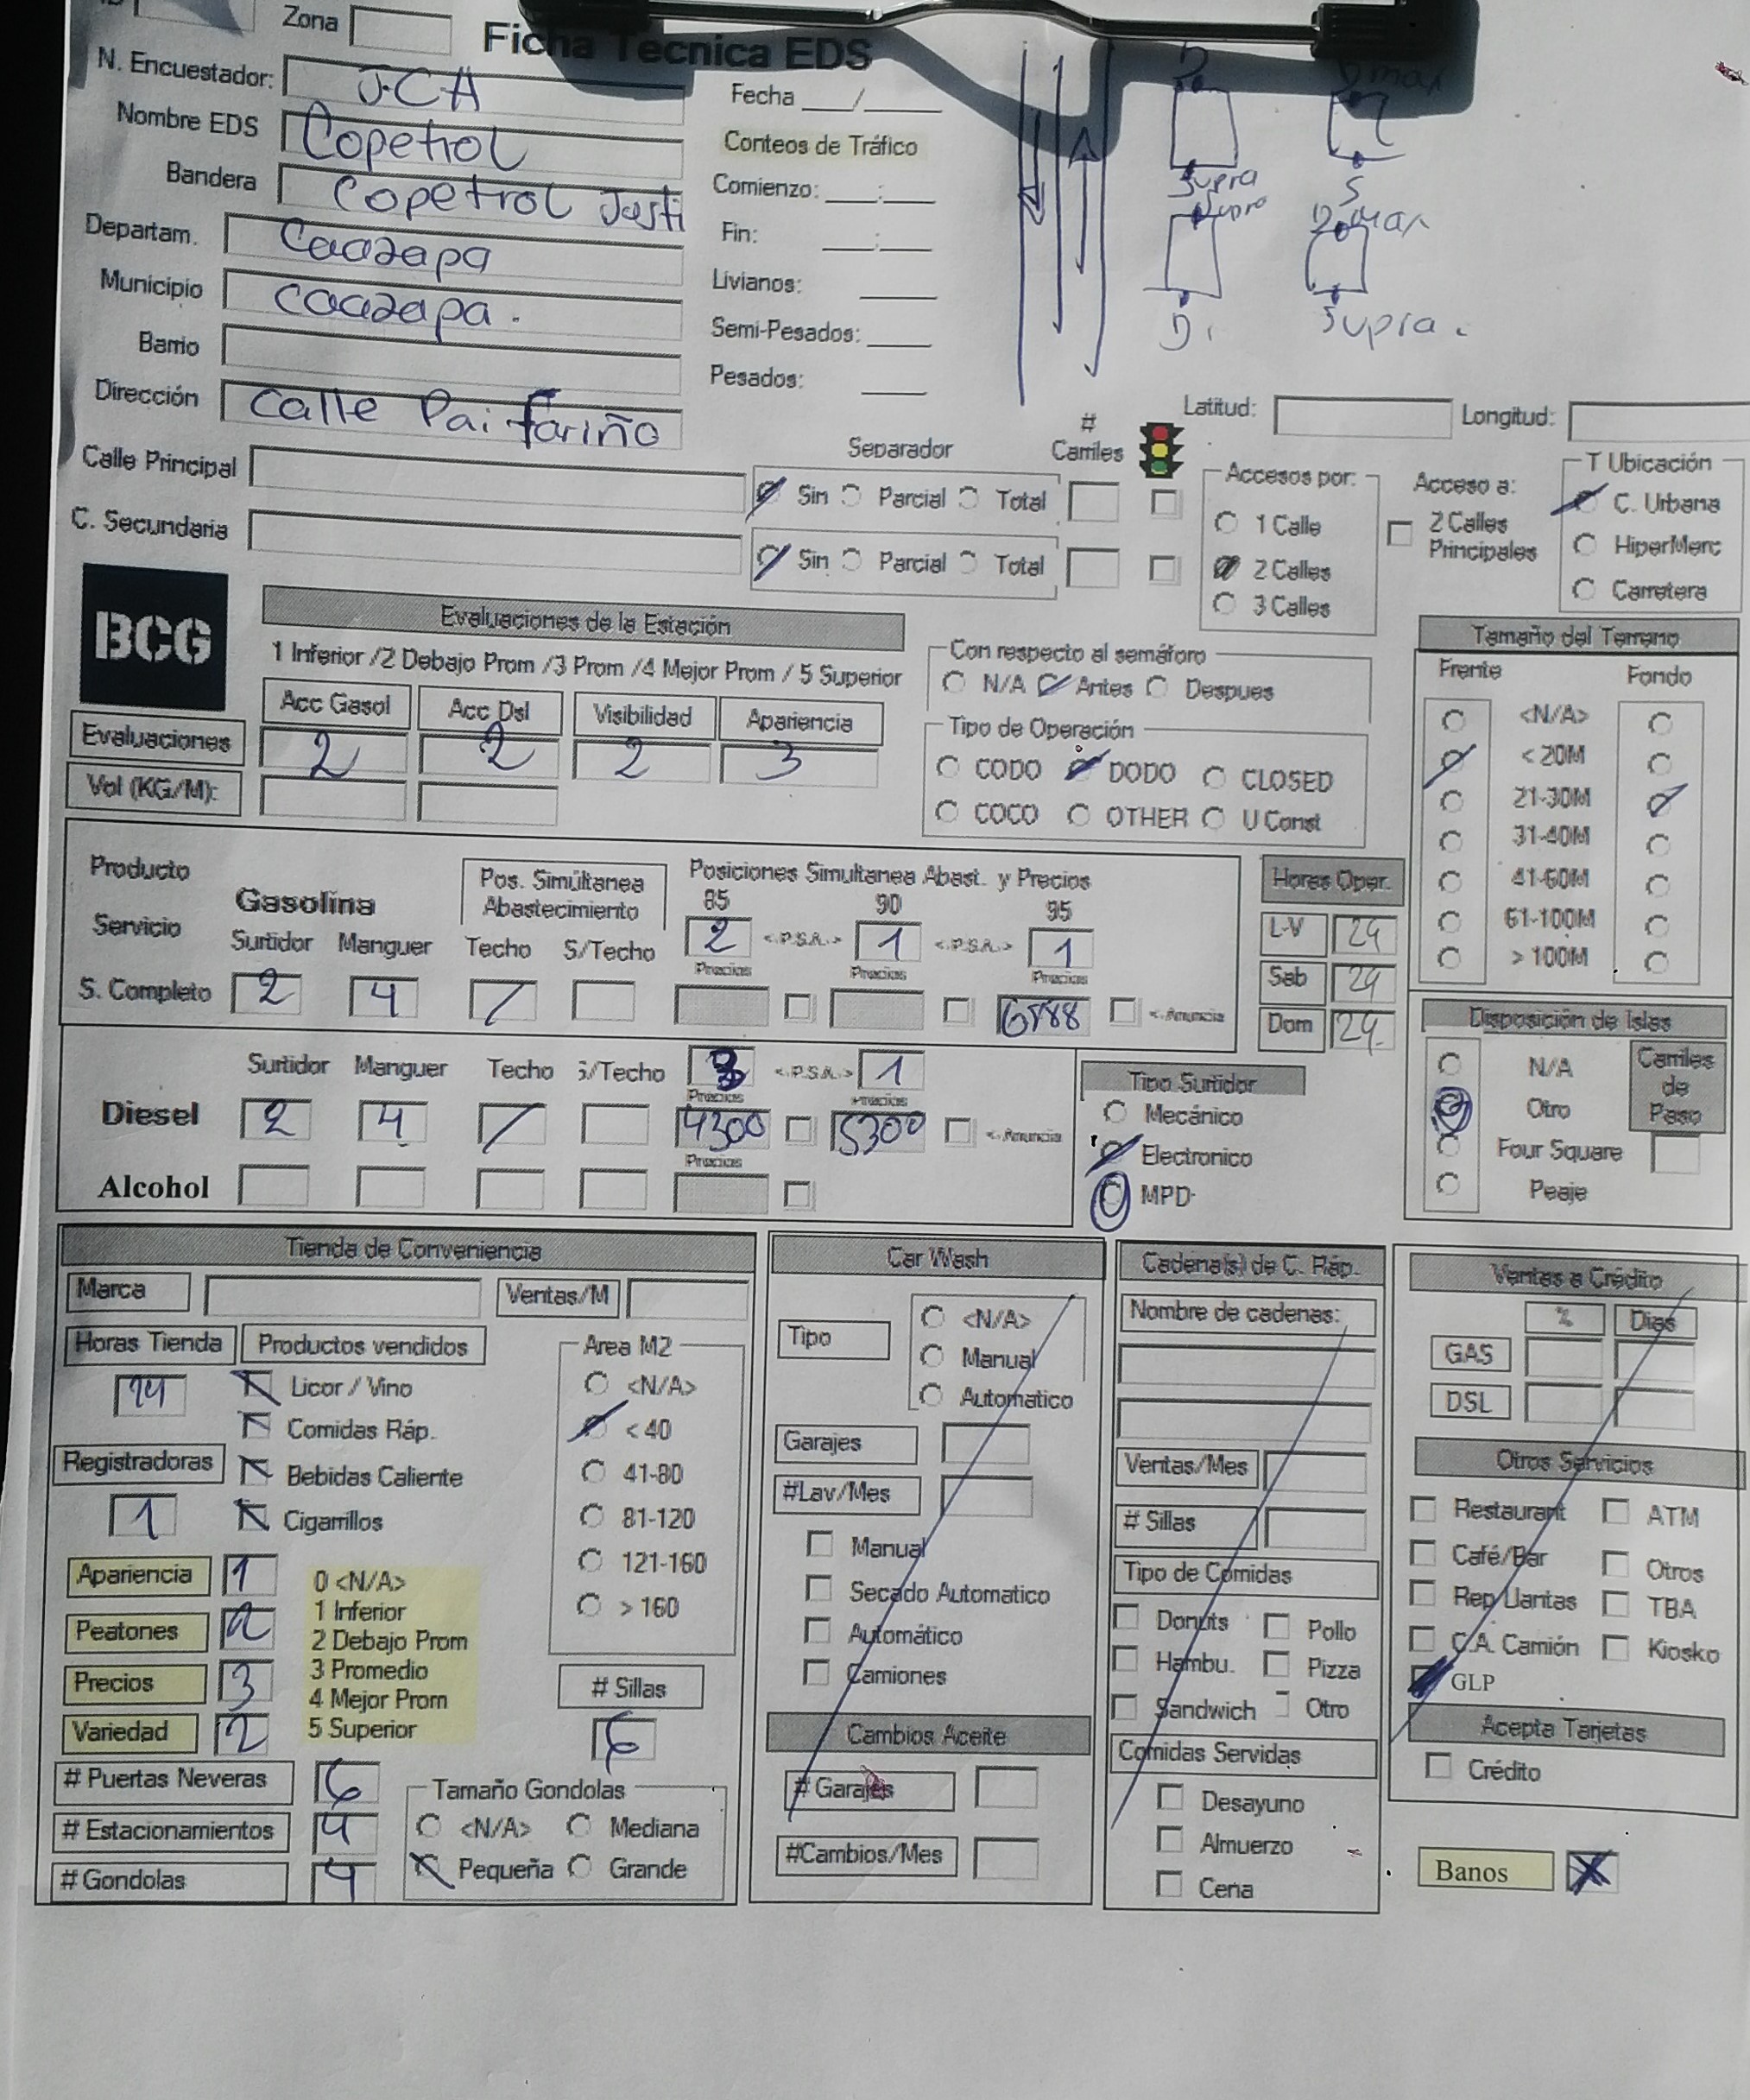 Zona
Ficha Tecnica EDS
N. Encuestador: J.C.A
Nombre EDS Copetrol
Bandera Copetrol Jasti
Departam. Caazapa
Municipio Caazapa.
Barrio
Dirección Calle Pai fariño
Fecha ___/_____
Conteos de Tráfico
Comienzo: ___:___
Fin: ___:___
Livianos: ____
Semi-Pesados: ____
Pesados: ____
D
Supra
Supra
D.
Dmax
S
D max
Supra.
Latitud: Longitud:
Calle Principal
C. Secundaria
Separador # Carriles
Sin Parcial Total
Sin Parcial Total
Accesos por:
1 Calle
2 Calles
3 Calles
Acceso a:
2 Calles Principales
T Ubicación
C. Urbana
HiperMerc
Carretera
BCG
Evaluaciones de la Estación
1 Inferior /2 Debajo Prom /3 Prom /4 Mejor Prom / 5 Superior
Acc Gasol Acc Dsl Visibilidad Apariencia
Evaluaciones 2 2 2 3
Vol (KG/M):
Con respecto al semáforo
N/A Antes Despues
Tipo de Operación
CODO DODO CLOSED
COCO OTHER U Const
Tamaño del Terreno
Frente Fondo
<N/A>
< 20M
21-30M
31-40M
41-60M
61-100M
> 100M
Producto
Servicio
Gasolina
Pos. Simúltanea Abastecimiento
Posiciones Simultanea Abast. y Precios
85 90 95
Surtidor Manguer Techo S/Techo 2 <.P.S.A.> 1 <.P.S.A.> 1
Precios Precios Precios
S. Completo 2 4 / <-Anuncia
Horas Oper.
L-V 24
Sab 24
Dom 24.
Surtidor Manguer Techo S/Techo 3 <.P.S.A.> 1
Precios Precios
Diesel 2 4 / 4300 5300 <-Anuncia
Precios
Alcohol
Tipo Surtidor
Mecánico
Electronico
MPD
Disposición de Islas
N/A
Otro
Four Square
Peaje
Carriles de Paso
Tienda de Conveniencia
Marca Ventas/M
Horas Tienda Productos vendidos
Licor / Vino
Comidas Ráp.
Registradoras
Bebidas Caliente
1 Cigarrillos
Area M2
<N/A>
< 40
41-80
81-120
121-160
> 160
Apariencia 1
Peatones 2
Precios 3
Variedad 2
0 <N/A>
1 Inferior
2 Debajo Prom
3 Promedio
4 Mejor Prom
5 Superior
# Sillas
6
# Puertas Neveras 6
# Estacionamientos 4
# Gondolas 4
Tamaño Gondolas
<N/A> Mediana
Pequeña Grande
Car Wash
Tipo
<N/A>
Manual
Automatico
Garajes
#Lav/Mes
Manual
Secado Automatico
Automático
Camiones
Cambios Aceite
# Garajes
#Cambios/Mes
Cadena(s) de C. Ráp.
Nombre de cadenas:
Ventas/Mes
# Sillas
Tipo de Comidas
Donuts Pollo
Hambu. Pizza
Sandwich Otro
Comidas Servidas
Desayuno
Almuerzo
Cena
Ventas a Crédito
% Dias
GAS
DSL
Otros Servicios
Restaurant ATM
Café/Bar Otros
Rep Llantas TBA
C.A. Camión Kiosko
GLP
Acepta Tarjetas
Crédito
Banos X